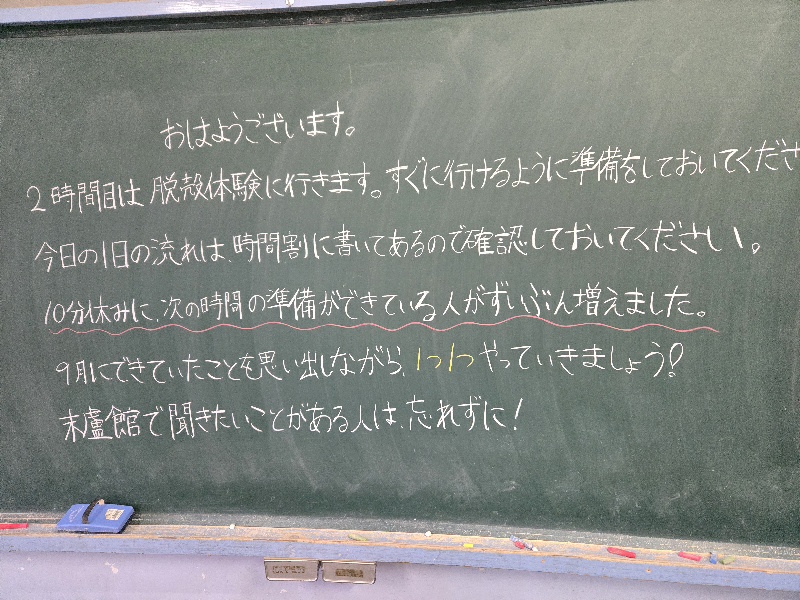 おはようございます。
2時間目は、脱殻体験に行きます。すぐに行けるように準備をしておいてくださ
今日の1日の流れは、時間割に書いてあるので確認しておいてください。
10分休みに、次の時間の準備ができている人がずいぶん増えました。
9月にできていたことを思い出しながら、1つ1つやっていきましょう！
末盧館で聞きたいことがある人は、忘れずに！